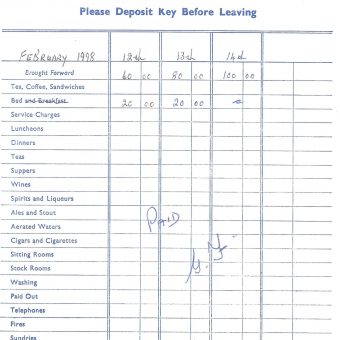 Please Deposit Key Before Leaving
FEBRUARY 1998 12th 13th 14th
Brought Forward 60 00 80 00 100 00
Tea, Coffee, Sandwiches
Bed and Breakfast. 20 00 20 00
Service Charges
Luncheons
Dinners
Teas
Suppers
Wines
Spirits and Liqueurs
Ales and Stout
Aerated Waters
PAID
Cigars and Cigarettes
Sitting Rooms
Stock Rooms
Washing
Paid Out
Telephones
Fires
Sundries